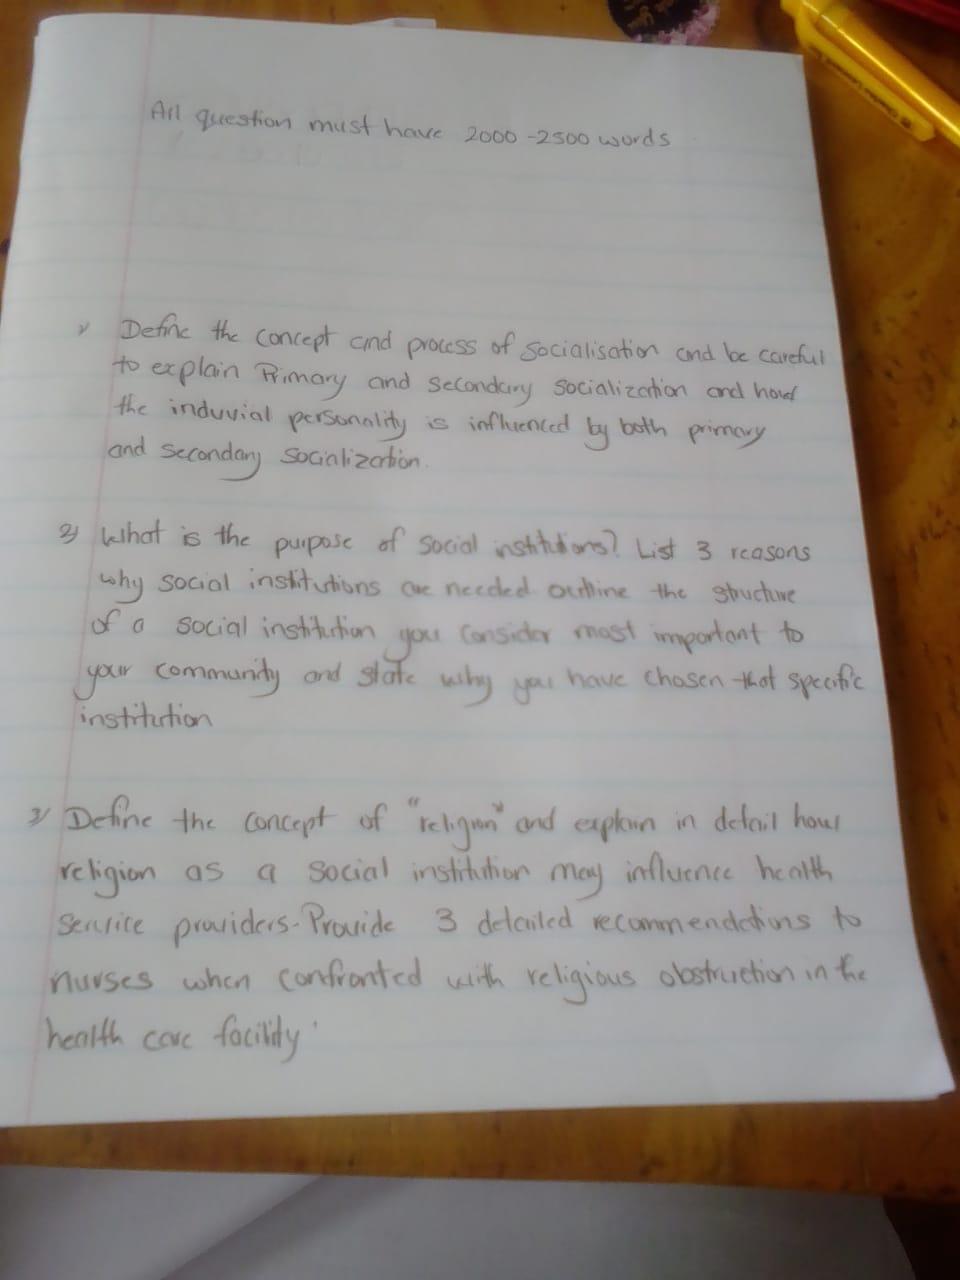 All question must have 2000-2500 words
1) Define the concept and process of socialisation and be careful
to explain Primary and secondary socialization and how
the induvial personality is influenced by both primary
and secondary socialization.
2) What is the purpose of social institutions? List 3 reasons
why social institutions are needed outline the structure
of a social institution you consider most important to
your community and state why you have chosen that specific
institution
3) Define the concept of "religion" and explain in detail how
religion as a social institution may influence health
service providers. Provide 3 detailed recommendations to
nurses when confronted with religious obstruction in the
health care facility.